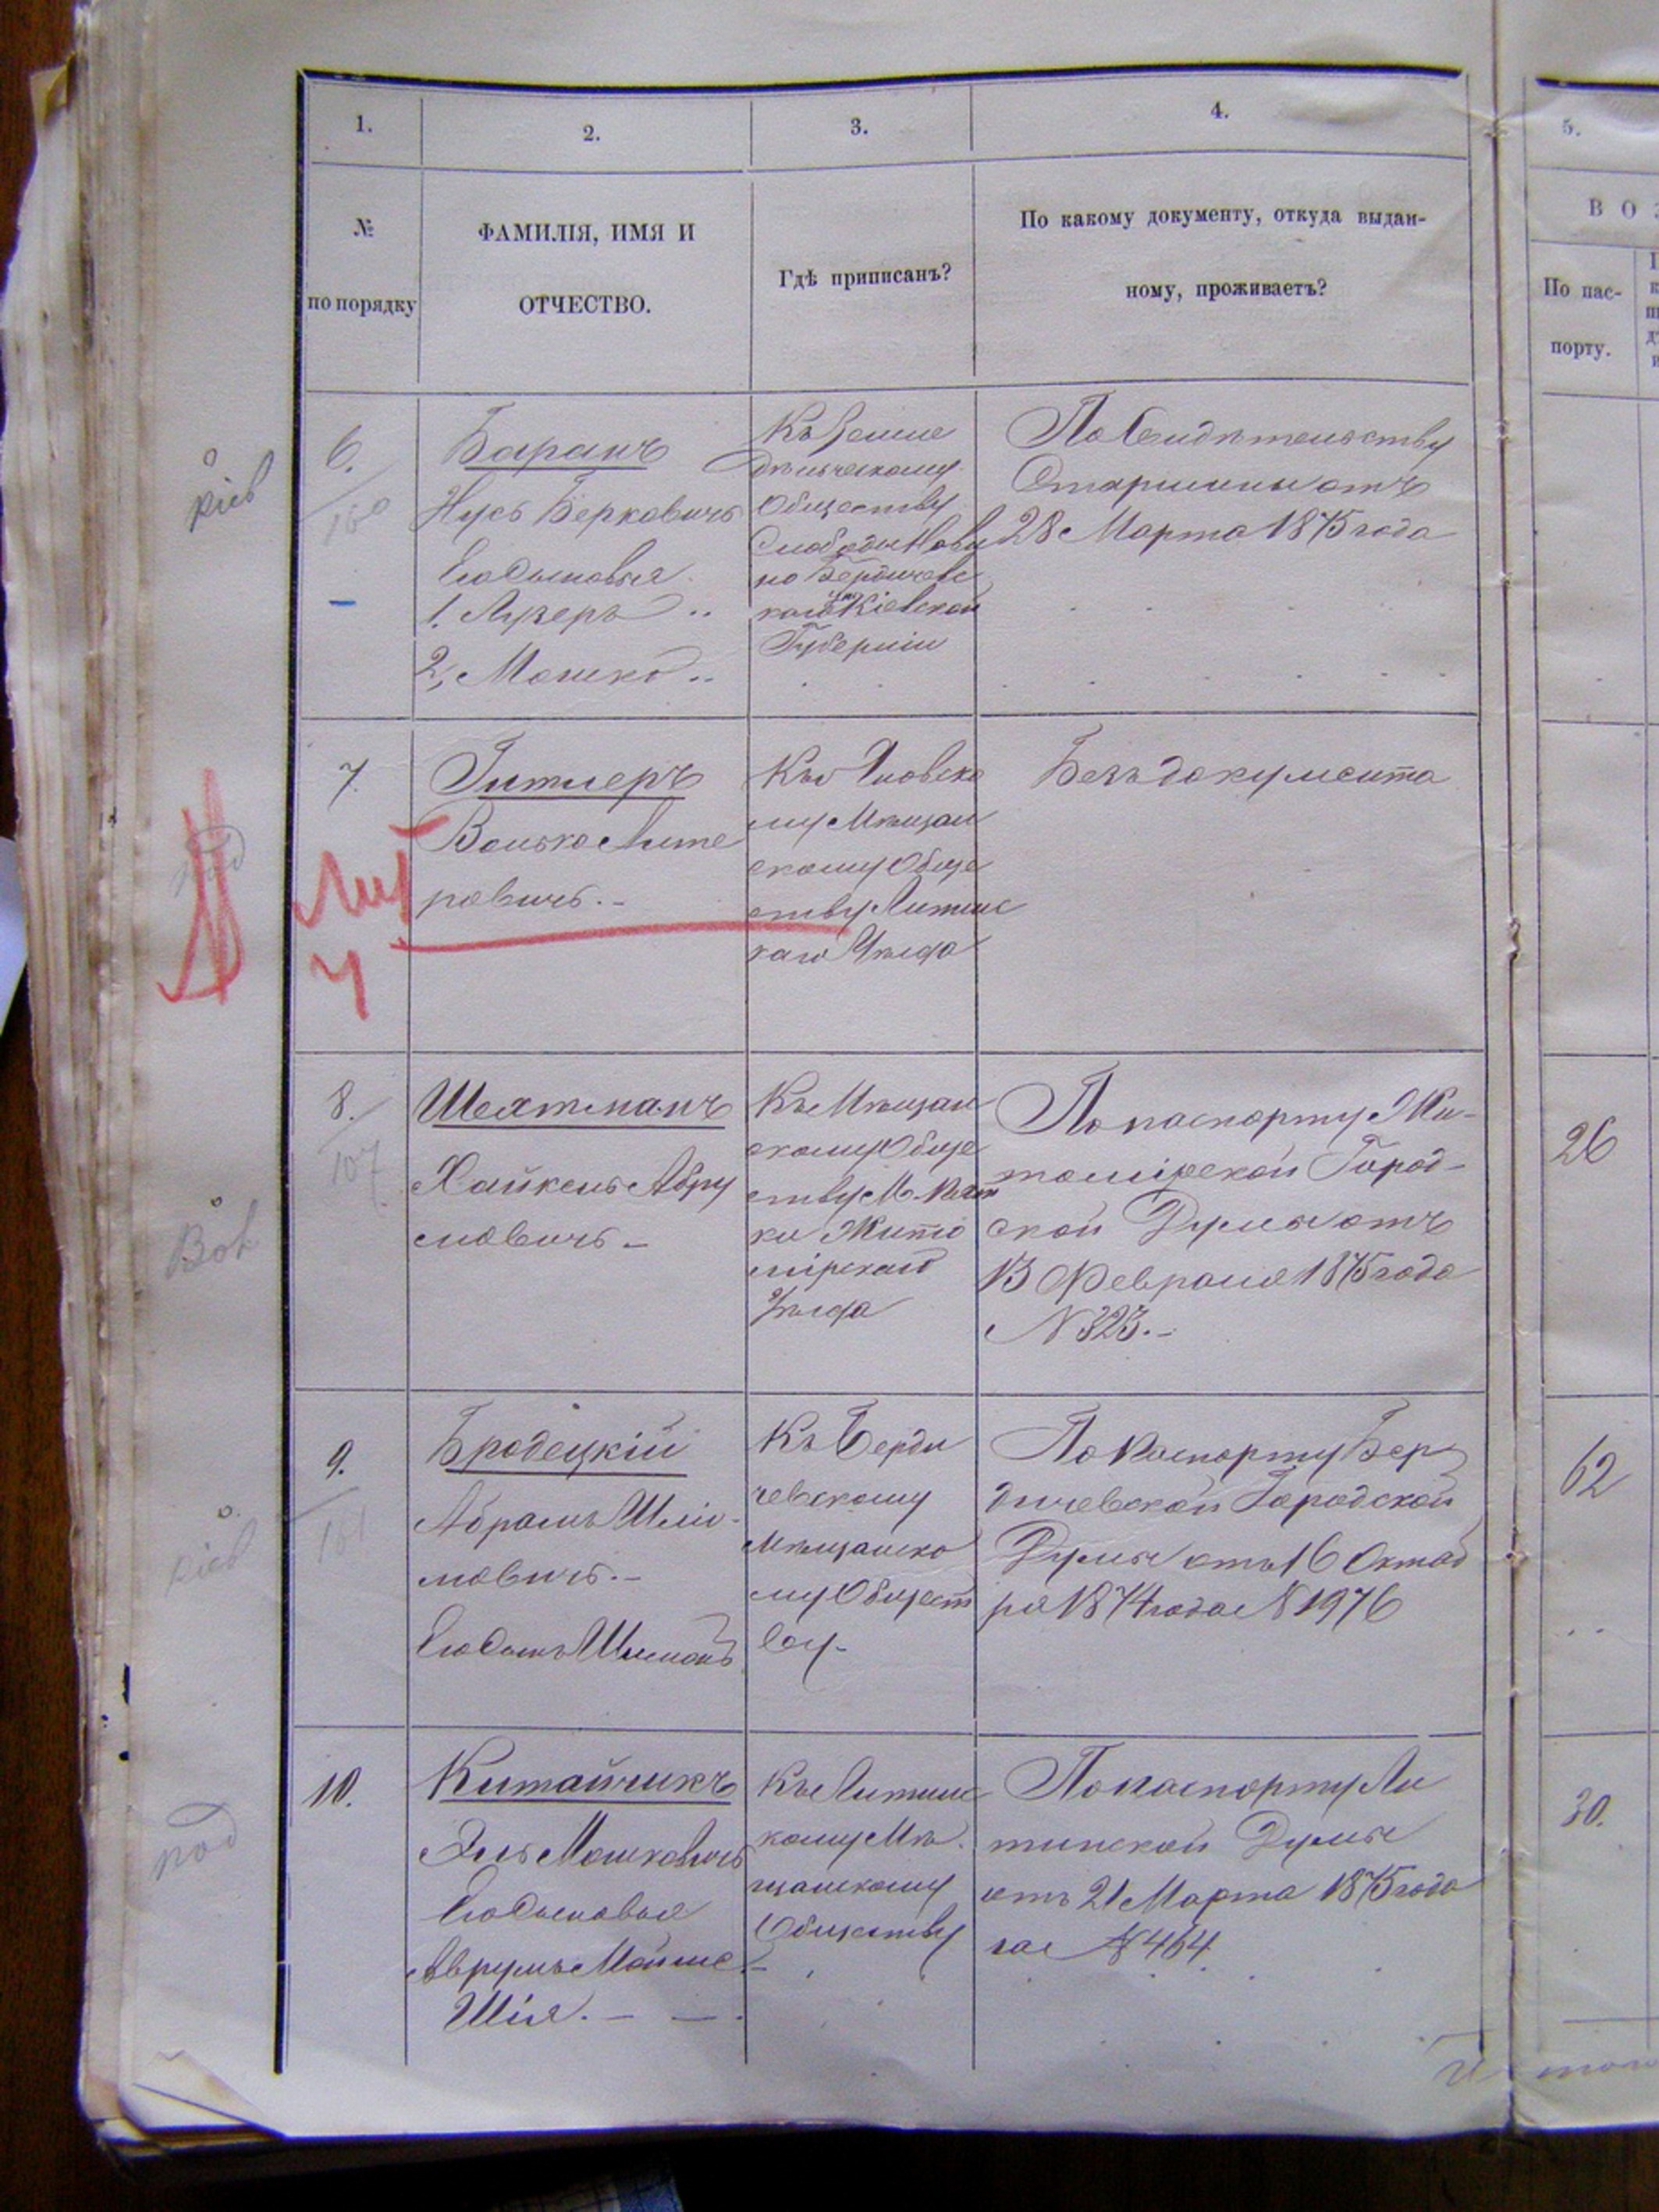 1.
2.
3.
4.
5.
№
по порядку
ФАМИЛІЯ, ИМЯ И
ОТЧЕСТВО.
Гдѣ приписанъ?
По какому документу, откуда выдан-
ному, проживаетъ?
ВОЗ
По пас-
порту.
Кіев
6.
160
Баранъ
Нусь Берковичъ
Его сыновья
1. Лузеръ
2, Мошко
Къ Земле
дѣльческому
Обществу
Слободы Нови
но Бердичевс
каго у. Кіевской
Губерніи
По Свидѣтельству
Старшины отъ
28 Марта 1875 года
под
7.
Лит
у
Гитлеръ
Волько Лите
ровичъ.-
Къ Яновско
му Мѣщан
скому Обще
ству Литинс
каго Уѣзда
Безъ документа
Вол
8.
107
Шехтманъ
Хайкель Абру
мовичъ-
Къ Мѣщан
скому Обще
ству М.
ки Жито
мірскаго
Уѣзда
По паспорту Жи-
томірской Город-
ской Думы отъ
13 Февраля 1875 года
№ 323.-
26
Кіев
9.
161
Бродецкій
Абрамъ Шлио-
мовичъ.-
Его сынъ Шлиома
Къ Берди
чевскому
Мѣщанско
му Общест
ву-
По Паспорту Бер
дичевской Городской
Думы отъ 16 Октяб
ря 1874 года № 1976
62
под
10.
Китайчикъ
Эль Мошковичъ
Его сыновья
Аврумъ Мойше
Шія.-
Къ Литинс
кому Мѣ
щанскому
Обществу
По паспорту Ли
тинской Думы
отъ 21 Марта 1875 года
за № 464.
30.